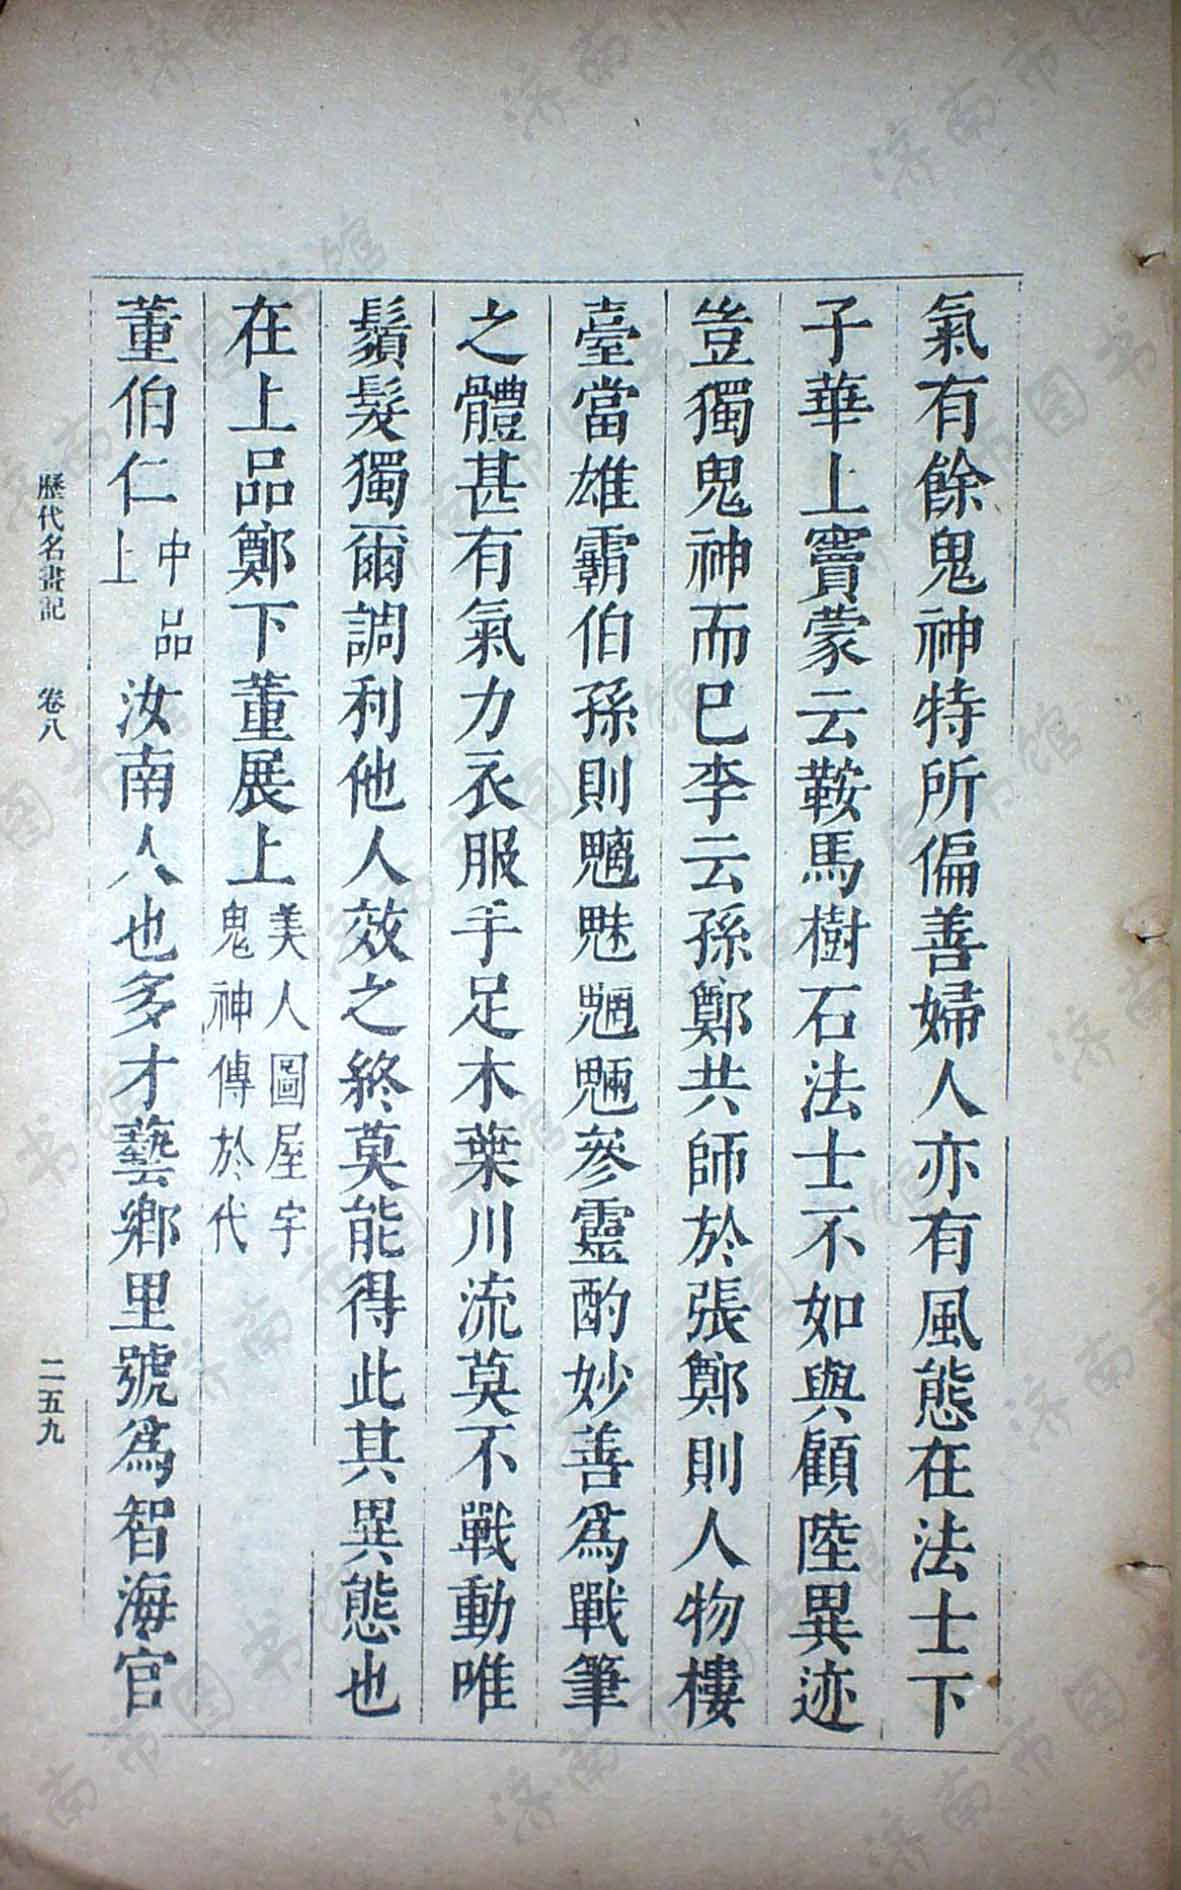 氣有餘鬼神特所偏善婦人亦有風態在法士下
子華上竇蒙云鞍馬樹石法士不如與顧陸異迹
豈獨鬼神而巳李云孫鄭共師於張鄭則人物樓
臺當雄霸伯孫則魑魅魍魎參靈酌妙善爲戰筆
之體甚有氣力衣服手足木葉川流莫不戰動唯
鬚髮獨爾調利他人效之終莫能得此其異態也
在上品鄭下董展上美人圖屋宇鬼神傳於代
董伯仁中品上汝南人也多才藝鄉里號爲智海官
歷代名畫記 卷八 二五九
济南市图书馆